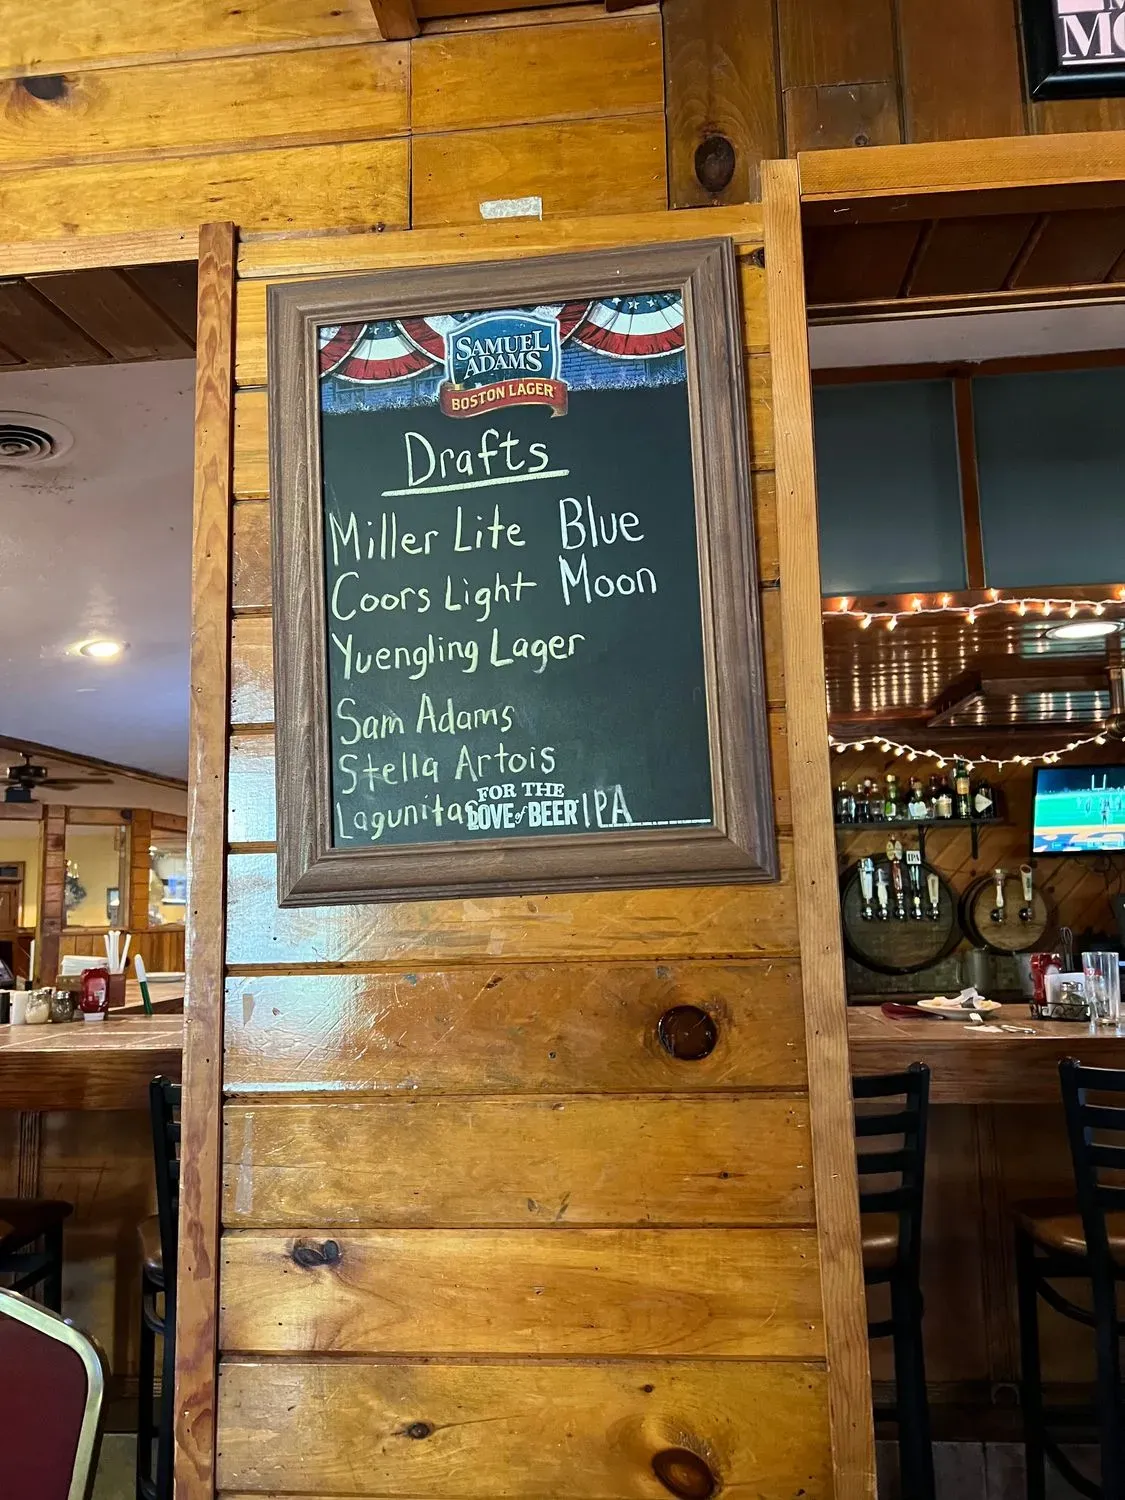 SAMUEL
ADAMS
BOSTON LAGER
Drafts
Miller Lite
Coors Light
Blue
Moon
Yuengling Lager
Sam Adams
Stella Artois
Lagunitas IPA
FOR THE
LOVE of BEER
IPA